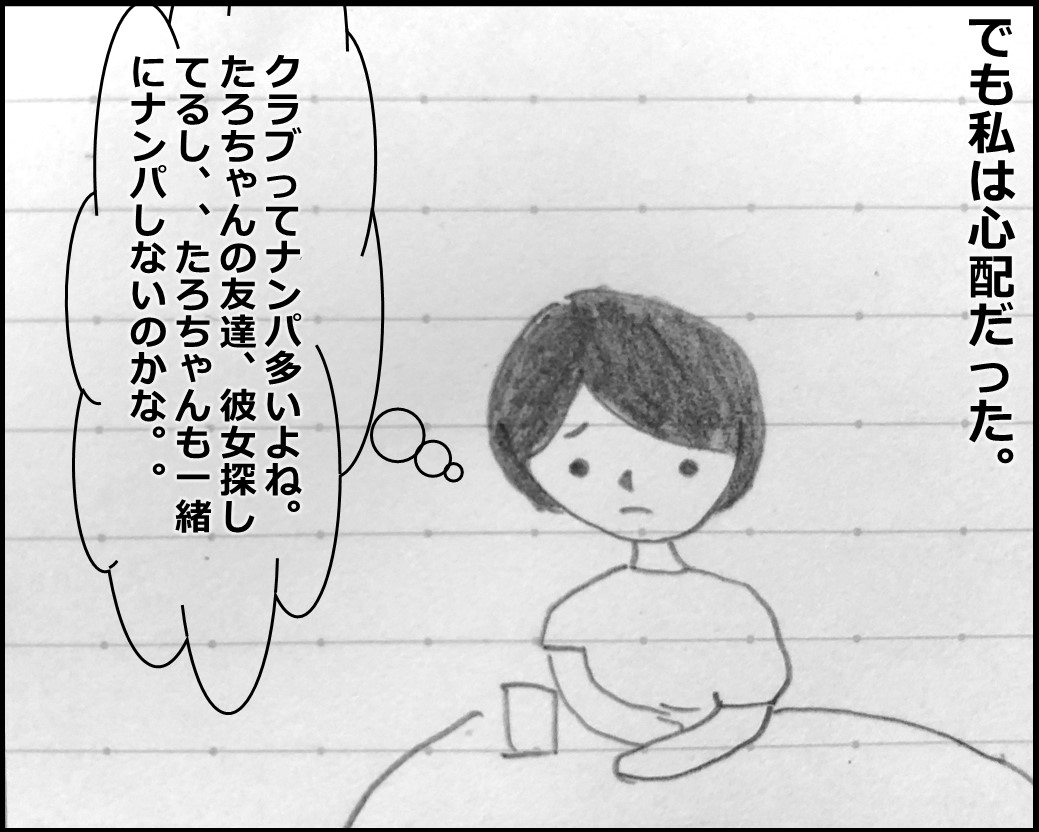 でも私は心配だった。
クラブってナンパ多いよね。
たろちゃんの友達、彼女探し
てるし、、たろちゃんも一緒
にナンパしないのかな。。